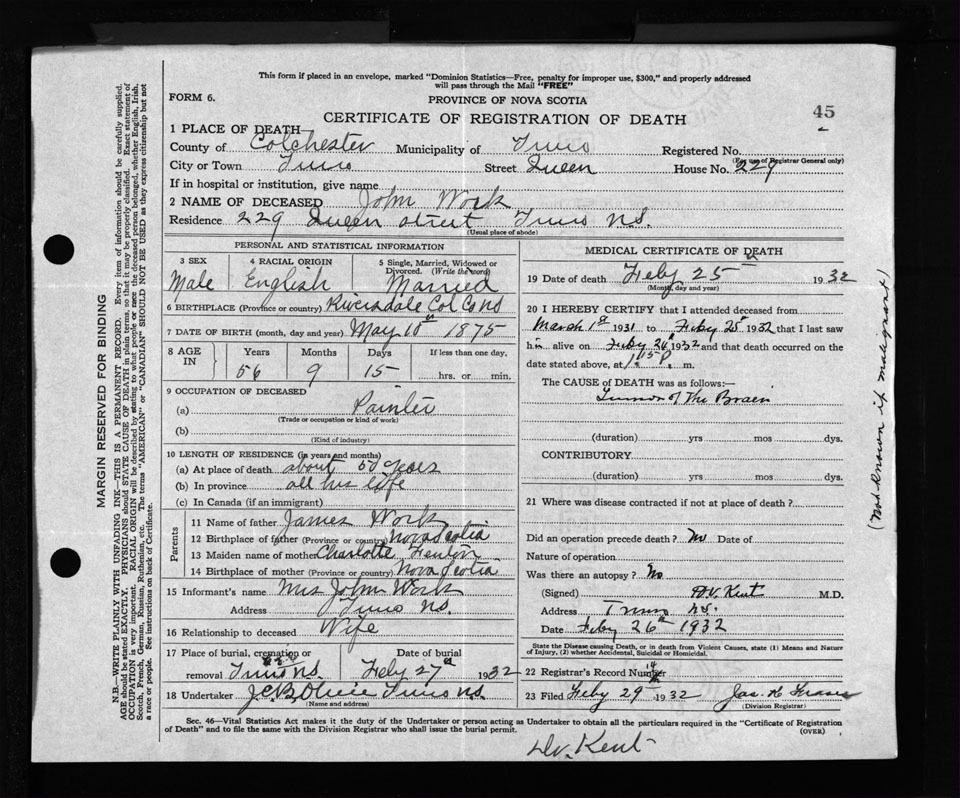 This form if placed in an envelope, marked "Dominion Statistics—Free, penalty for improper use, $300," and properly addressed
will pass through the Mail "FREE"
FORM 6.
PROVINCE OF NOVA SCOTIA
45
CERTIFICATE OF REGISTRATION OF DEATH
1 PLACE OF DEATH—
County of Colchester Municipality of Truro Registered No.
(For use of Registrar General only)
City or Town Truro Street Queen House No. 229
If in hospital or institution, give name
2 NAME OF DECEASED John Work
Residence 229 Queen street Truro N.S.
(Usual place of abode)
PERSONAL AND STATISTICAL INFORMATION
3 SEX Male
4 RACIAL ORIGIN English
5 Single, Married, Widowed or Divorced. (Write the word) Married
6 BIRTHPLACE (Province or country) Riversdale Col Co NS
7 DATE OF BIRTH (month, day and year) May 10th 1875
8 AGE IN Years Months Days If less than one day,
56 9 15 hrs. or min.
9 OCCUPATION OF DECEASED
(a) Painter
(Trade or occupation or kind of work)
(b)
(Kind of industry)
10 LENGTH OF RESIDENCE (in years and months)
(a) At place of death about 50 years
(b) In province all his life
(c) In Canada (if an immigrant)
Parents
11 Name of father James Work
12 Birthplace of father (Province or country) Nova Scotia
13 Maiden name of mother Charlotte Fenton
14 Birthplace of mother (Province or country) Nova Scotia
15 Informant's name Mrs John Work
Address Truro N.S.
16 Relationship to deceased Wife
17 Place of burial, cremation or removal Truro N.S. Date of burial Feby 27th 1932
18 Undertaker Truro N.S.
(Name and address)
MEDICAL CERTIFICATE OF DEATH
19 Date of death Feby 25th 1932
(Month, day and year)
20 I HEREBY CERTIFY that I attended deceased from
March 1st 1931 to Feby 25th 1932 that I last saw
him alive on Feby 24th 1932 and that death occurred on the
date stated above, at 1.15 P. m.
The CAUSE of DEATH was as follows:—
Tumor of The Brain
(duration) yrs mos dys.
CONTRIBUTORY
(duration) yrs mos dys.
21 Where was disease contracted if not at place of death?
Did an operation precede death? No Date of
Nature of operation
Was there an autopsy? No
(Signed) H.V. Kent M.D.
Address Truro N.S.
Date Feby 26th 1932
State the Disease causing Death, or in death from Violent Causes, state (1) Means and Nature
of Injury, (2) whether Accidental, Suicidal or Homicidal.
22 Registrar's Record Number
23 Filed Feby 29th 1932 Jas. H. Fraser
(Division Registrar)
Sec. 46—Vital Statistics Act makes it the duty of the Undertaker or person acting as Undertaker to obtain all the particulars required in the "Certificate of Registration
of Death" and to file the same with the Division Registrar who shall issue the burial permit.
(OVER)
Dr. Kent
(Not known if malignant)
MARGIN RESERVED FOR BINDING
N.B.—WRITE PLAINLY WITH UNFADING INK—THIS IS A PERMANENT RECORD. Every item of information should be carefully supplied.
AGE should be stated EXACTLY. PHYSICIANS should STATE CAUSE OF DEATH in plain terms, so that it may be properly classified. Exact statement of
OCCUPATION is very important. RACIAL ORIGIN will be described by stating to what people or race the deceased person belonged, whether English, Irish,
Scotch, French, German, Russian, Ruthenian, etc. The terms "AMERICAN" or "CANADIAN" SHOULD NOT BE USED as they express citizenship but not
a race or people. See instructions on back of Certificate.